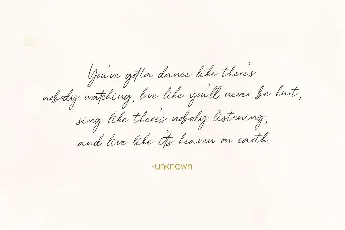 You've gotta dance like there's
nobody watching, love like you'll never be hurt,
sing like there's nobody listening,
and live like it's heaven on earth.
-unknown